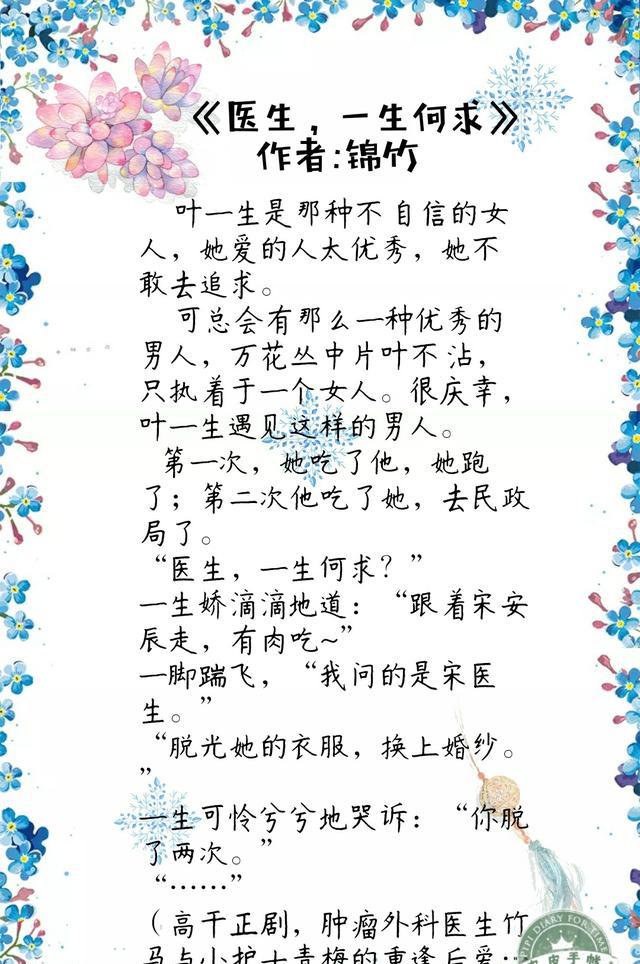 《医生，一生何求》
作者:锦竹
叶一生是那种不自信的女
人，她爱的人太优秀，她不
敢去追求。
可总会有那么一种优秀的
男人，万花丛中片叶不沾，
只执着于一个女人。很庆幸，
叶一生遇见这样的男人。
第一次，她吃了他，她跑
了；第二次他吃了她，去民政
局了。
“医生，一生何求？”
一生娇滴滴地道：“跟着宋安
辰走，有肉吃~”
一脚踹飞，“我问的是宋医
生。”
“脱光她的衣服，换上婚纱。
”
一生可怜兮兮地哭诉：“你脱
了两次。”
“……”
（高干正剧，肿瘤外科医生竹
马与小护士青梅的重逢后爱…
DIARY FOR TIME